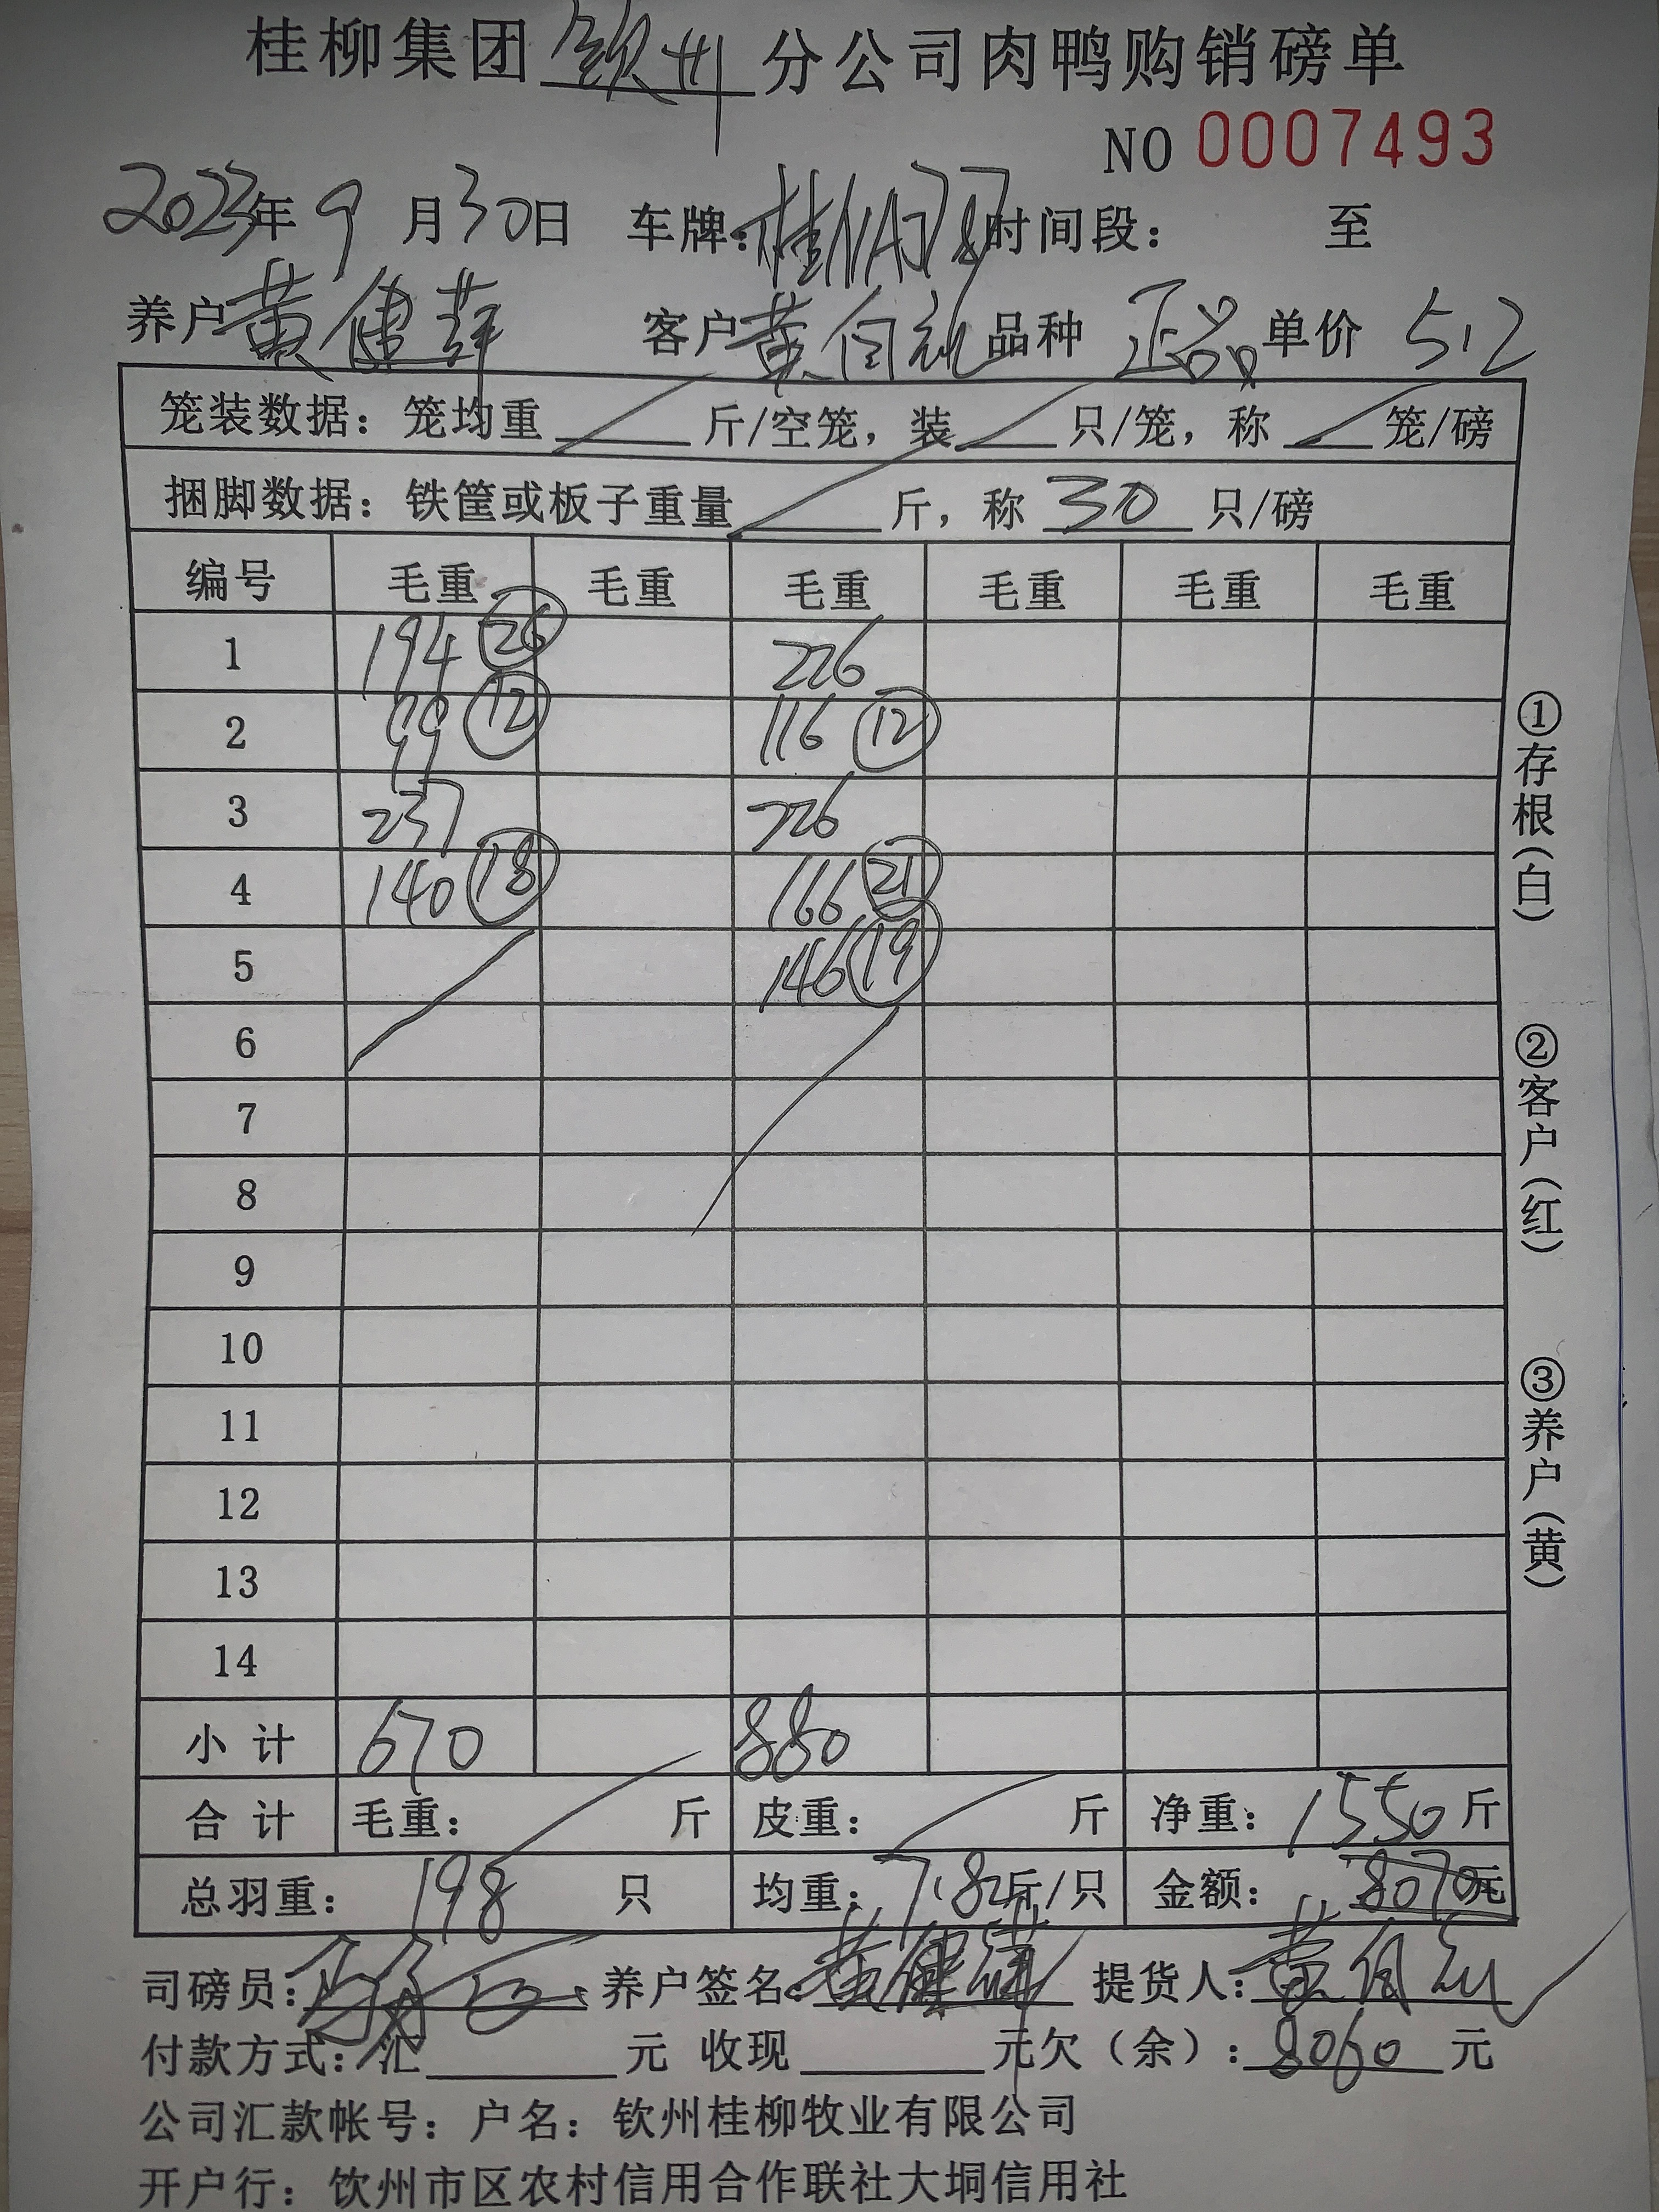 桂柳集团钦州分公司肉鸭购销磅单
NO 0007493
2023年9月30日 车牌: 时间段: 至
养户 黄健萍 客户 黄自礼 品种 正品 单价 5.2
笼装数据: 笼均重 斤/空笼, 装 只/笼, 称 笼/磅
捆脚数据: 铁筐或板子重量 斤, 称 30 只/磅
编号 毛重 毛重 毛重 毛重 毛重 毛重
1 194 26 226
2 99 12 116 12
3 237 226
4 140 18 166 21
5 146 19
6
7
8
9
10
11
12
13
14
小计 670 880
合计 毛重: 斤 皮重: 斤 净重: 1550斤
总羽重: 198 只 均重: 7.82斤/只 金额: 8070元
司磅员: 养户签名: 黄健萍 提货人: 黄自礼
付款方式: 汇 元 收现 元 欠(余): 8060 元
公司汇款帐号: 户名: 钦州桂柳牧业有限公司
开户行: 钦州市区农村信用合作联社大垌信用社
①存根(白)
②客户(红)
③养户(黄)